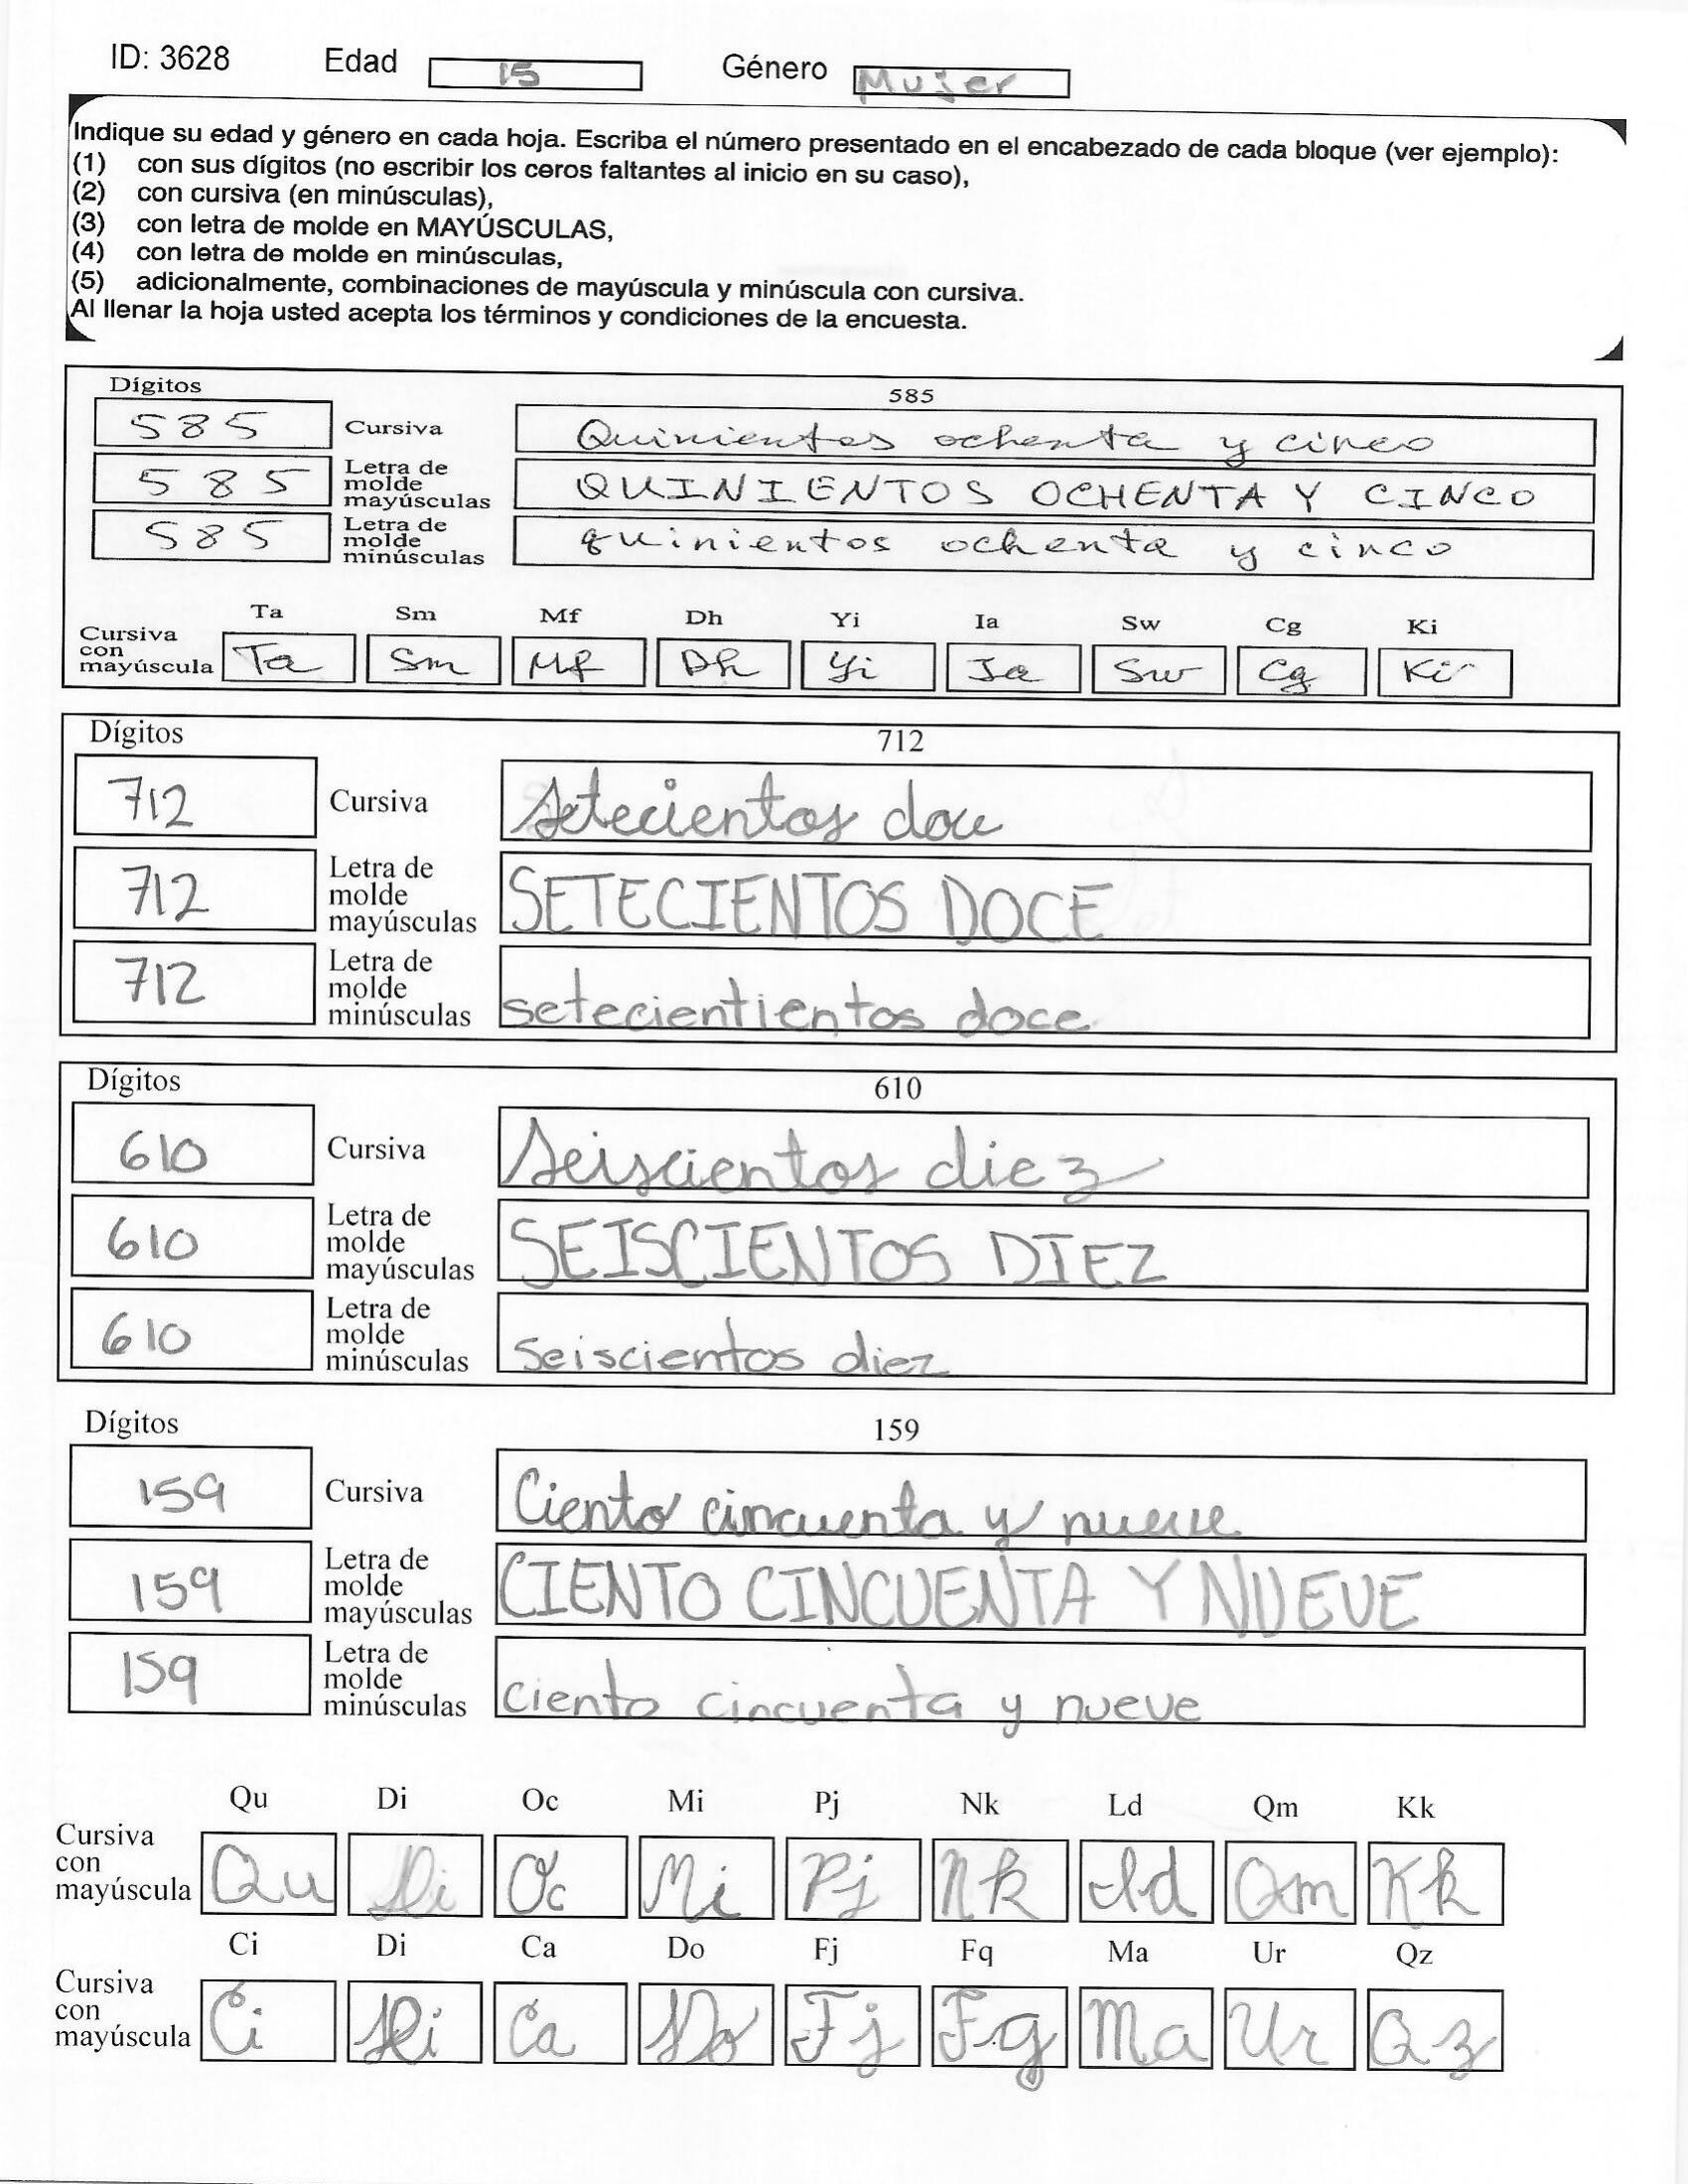 ID: 3628 Edad 15 Género Mujer
Indique su edad y género en cada hoja. Escriba el número presentado en el encabezado de cada bloque (ver ejemplo):
(1) con sus dígitos (no escribir los ceros faltantes al inicio en su caso),
(2) con cursiva (en minúsculas),
(3) con letra de molde en MAYÚSCULAS,
(4) con letra de molde en minúsculas,
(5) adicionalmente, combinaciones de mayúscula y minúscula con cursiva.
Al llenar la hoja usted acepta los términos y condiciones de la encuesta.
Dígitos 585
585 Cursiva Quinientos ochenta y cinco
585 Letra de molde mayúsculas QUINIENTOS OCHENTA Y CINCO
585 Letra de molde minúsculas quinientos ochenta y cinco
Ta Sm Mf Dh Yi Ia Sw Cg Ki
Cursiva con mayúscula Ta Sm Mf Dh Yi Ia Sw Cg Ki
Dígitos 712
712 Cursiva setecientos doce
712 Letra de molde mayúsculas SETECIENTOS DOCE
712 Letra de molde minúsculas setecientientos doce
Dígitos 610
610 Cursiva seiscientos diez
610 Letra de molde mayúsculas SEISCIENTOS DIEZ
610 Letra de molde minúsculas seiscientos diez
Dígitos 159
159 Cursiva Ciento cincuenta y nueve
159 Letra de molde mayúsculas CIENTO CINCUENTA Y NUEVE
159 Letra de molde minúsculas ciento cincuenta y nueve
Qu Di Oc Mi Pj Nk Ld Qm Kk
Cursiva con mayúscula Qu Di Oc Mi Pj Nk Ld Qm Kk
Ci Di Ca Do Fj Fq Ma Ur Qz
Cursiva con mayúscula Ci Di Ca Do Fj Fg Ma Ur Qz